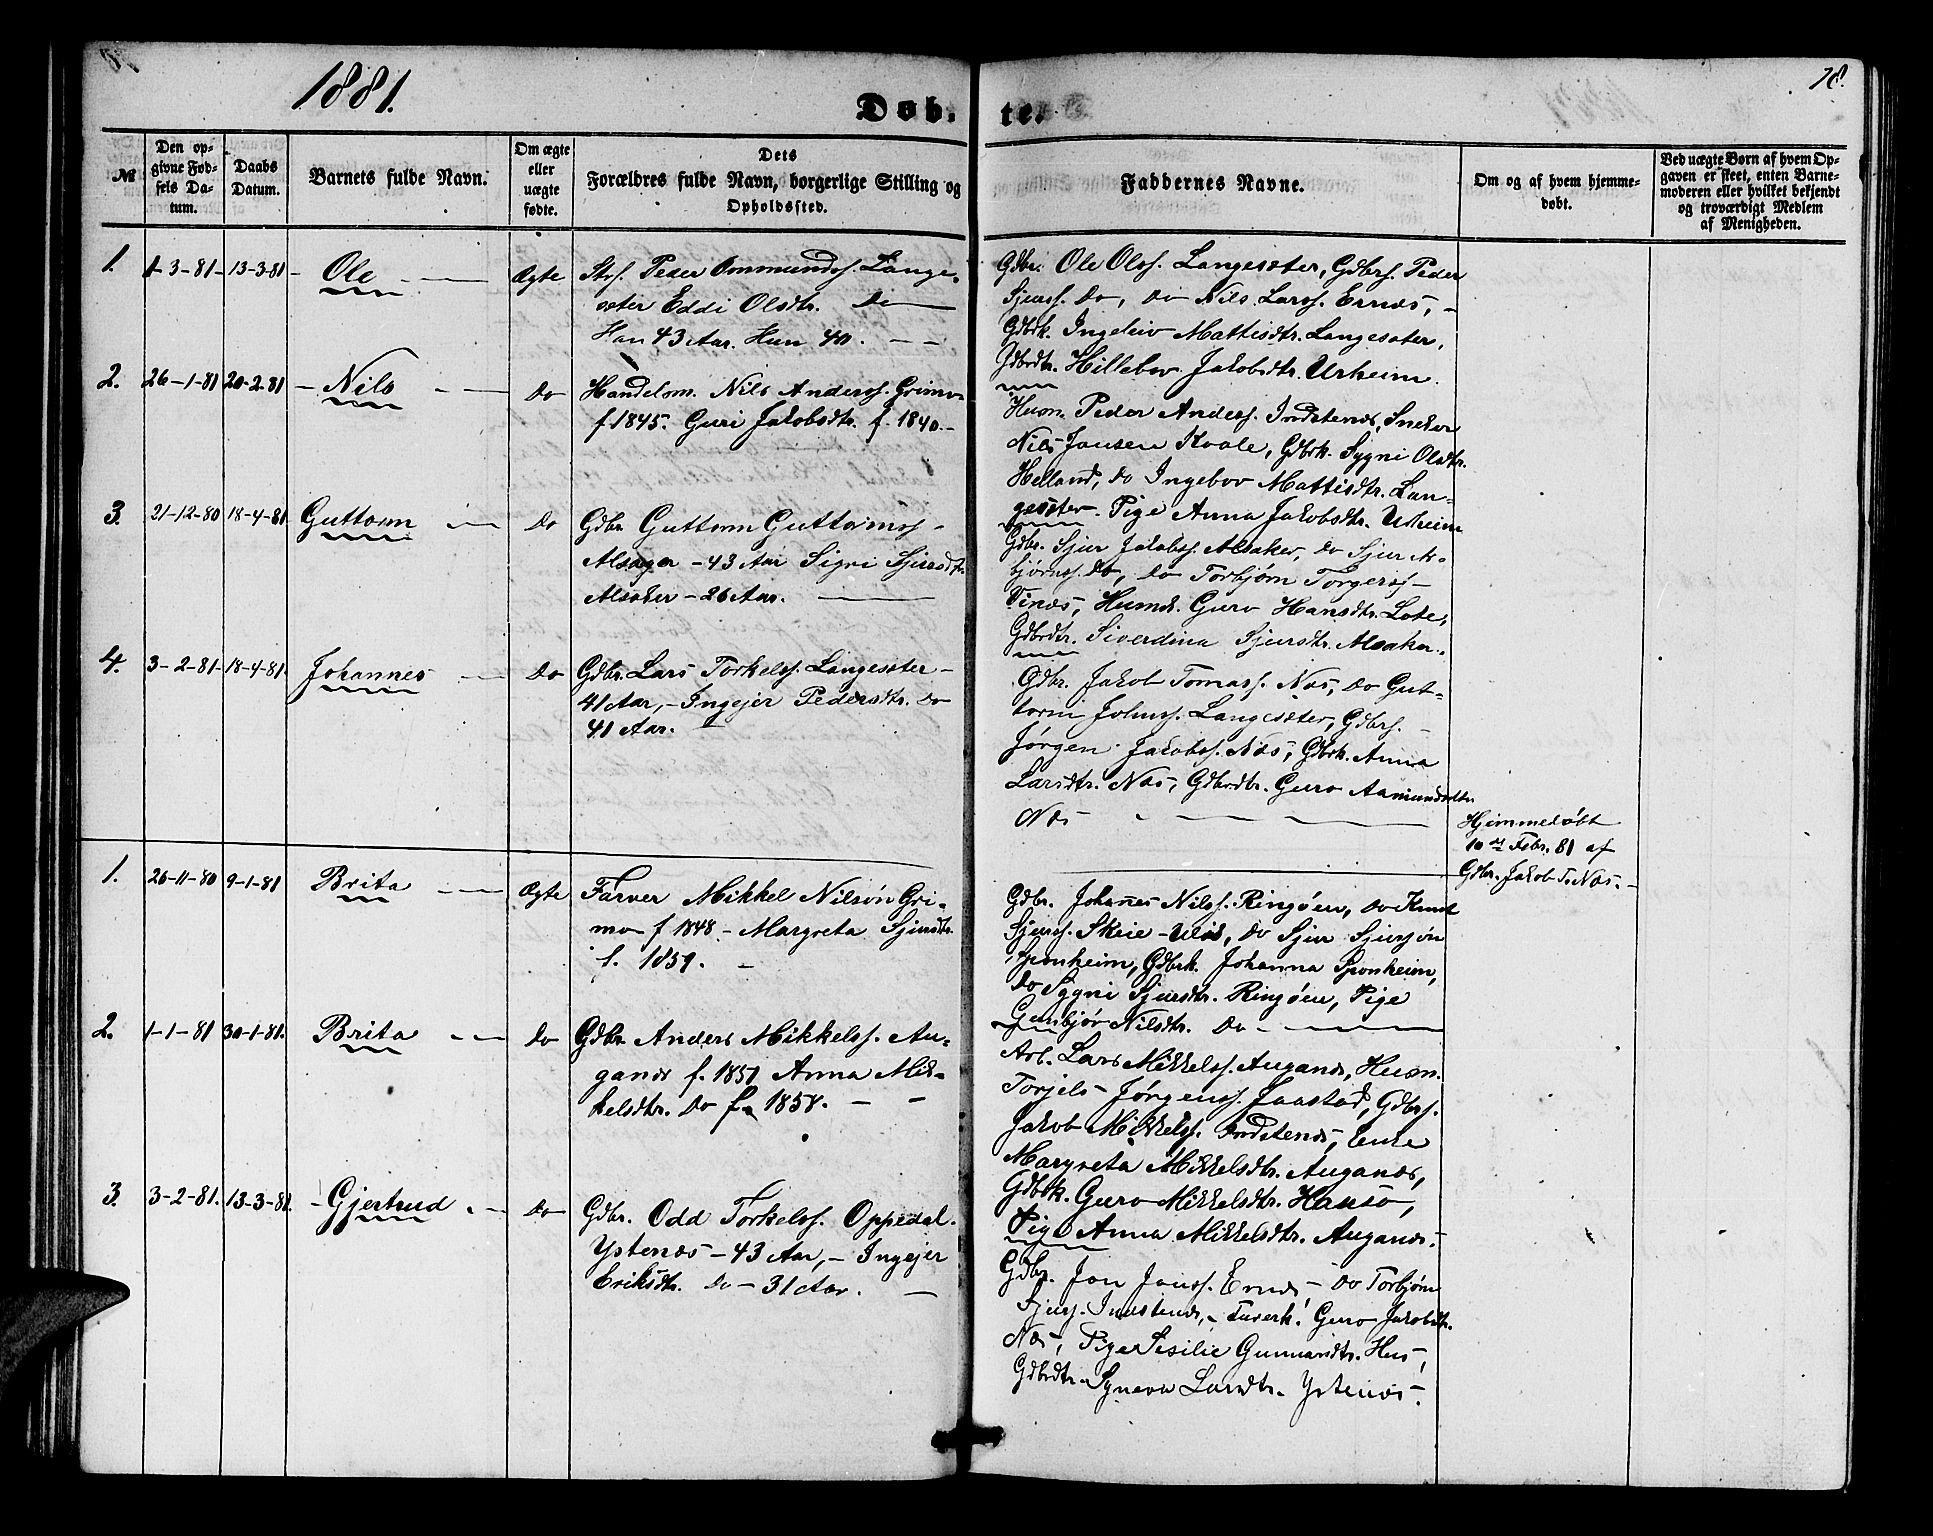 1881.
Døb-
te.
78.
№
Den op-
givne Fød-
sels Da-
tum.
Daabs
Datum.
Barnets fulde Navn.
Om ægte
eller
uægte
fødte.
Dets
Forældres fulde Navn, borgerlige Stilling og
Opholdssted.
Faddernes Navne.
Om og af hvem hjemme-
døbt.
Ved uægte Børn af hvem Op-
gaven er skeet, enten Barne-
moderen eller hvilket bekjendt
og troværdigt Medlem
af Menigheden.
1. 1-3-81- 13-3-81- Ole Ægte
Peder Ommundss. Lange-
sæter Eddi Olsdtr. Do
Han 43 Aar. Hun 40.
Gdbr. Ole Olss. Langesæter, Gdbrs. Peder
Sjurss. Do, Do Nils Larss. Ernæs, -
Gdbrk. Ingeleiv Mattisdtr. Langesæter,
Gdbrdtr. Hillebor Jakobsdtr. Urheim.
2. 26-1-81 20-2-81 - Nils Do
Handelsm. Nils Anderss. Grimo
f. 1845. Guri Jakobsdtr. f. 1840.-
Husm. Peder Anderss. Indstenæs, Sneker
Nils Jansen Kvale, Gdbrk. Sygni Olsdtr.
Helland, Do Ingebor Mattisdtr. Lan-
gesæter. Pige Anna Jakobsdtr. Urheim
3. 21-12-80 18-4-81 Guttorm Do
Gdbr. Guttorm Guttormss -
Alsager - 43 Aar Sigri Sjursdtr.
Alsaker - 26 Aar.
Gdbr. Sjur Jakobss. Alsaker, Do Sjur As-
bjørnss. Do, Do Torbjørn Torgerss -
Vinæs, Husmk. Guro Hansdtr. Lote,
Gdbrdtr. Siverdina Sjursdtr. Alsaker.
4. 3-2-81- 18-4-81. Johannes Do
Gdbr. Lars Torkelss. Langesæter -
41 Aar, - Ingejer Pedersdtr. Do
41 Aar.
Gdbr. Jakob Tomass. Næs, Do Gut-
torm Johnss. Langesæter, Gdbrs.
Jørgen Jakobss. Næs, Gdbrk. Anna
Larsdtr. Næs, Gdbrdtr. Guro Aamundsdtr.
Næs
Hjemmedøbt
10 de Febr. 81 af
Gdbr. Jakob T. Næs.-
1. 26-11-80 9-1-81 Brita Ægte
Farver Mikkel Nilsøn Gri-
mo f 1848 - Margreta Sjursdtr.
f. 1859.
Gdbr. Johanes Nilss. Ringøen, Do Knut
Sjurss. Skeie - , Do Sjur Sjursøn
Sponheim, Gdbrk. Johanna Sponheim,
Do Sygni Sjursdtr. Ringøen, Pige
Gunbjør Nilsdtr. Do
2. 1-1-81 30-1-81. Brita Do
Gdbr. Anders Mikkelss. Au-
ganæs f. 1851 Anna Mik-
kelsdtr. Do f. 1858.
Arb. Lars Mikkelss. Auganæs, Husm.
Torjels Jørgenss. Jaastad, Gdbrs.
Jakob Mikkelss. Indstenæs, Enke
Margreta Mikkelsdtr. Auganæs,
Gdbrk. Guro Mikkelsdtr. Hauso,
Pige Anna Mikkelsdtr. Auganæs.
3. 3-2-81. 13-3-81. - Gjertrud Do
Gdbr. Odd Torkelss. Oppedal.
Ystenæs - 43 Aar, - Ingejer
Eriksdtr. Do - 31 Aar.
Gdbr. Jon Jonss. Ernæs, Do Torbjørn
Sjurss. Indstenæs, - Guro Jakobsdtr.
Næs, Pige Sesilie Gunnarsdtr. Hus,
Gdbrdtr. Syneva Larsdtr. Ystenæs.